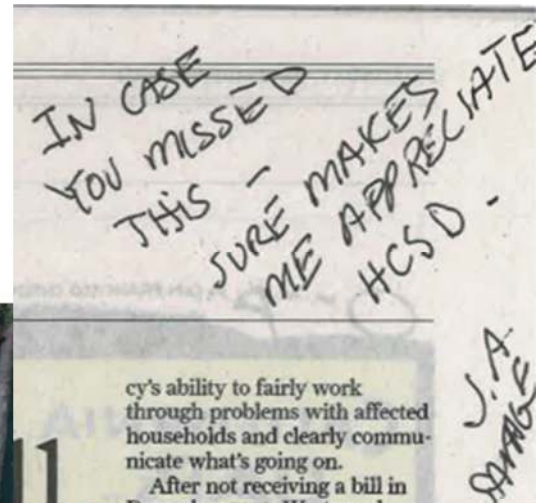 IN CASE
YOU MISSED
THIS -
SURE MAKES
ME APPRECIATE
HCSD -
J.A.
cy's ability to fairly work
through problems with affected
households and clearly commu-
nicate what's going on.
After not receiving a bill in